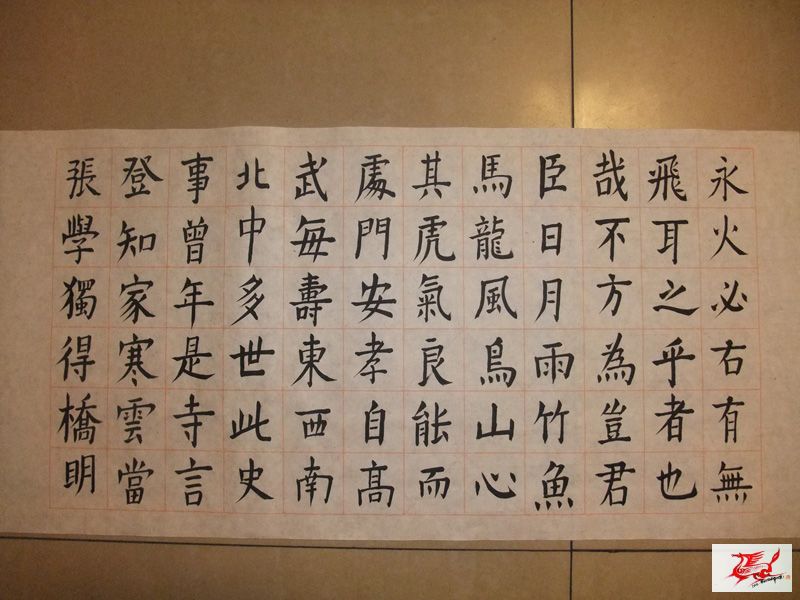 永火必右有無
飛耳之乎者也
哉不方為豈君
臣日月雨竹魚
馬龍風鳥山心
其虎氣良能而
處門安孝自高
武每壽東西南
北中多世此史
事曾年是寺言
登知家寒雲當
張學獨得橋明